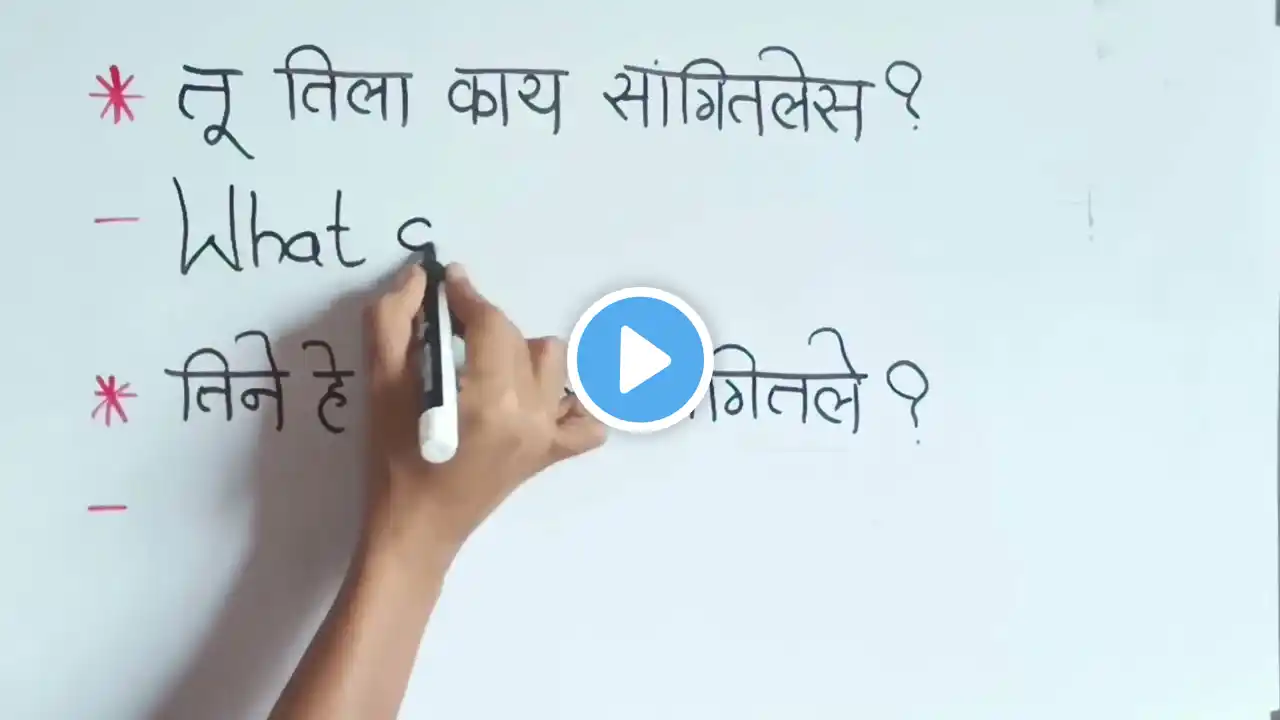 * तू तिला काय सांगितलेस ?
- What
* तिने हे
-